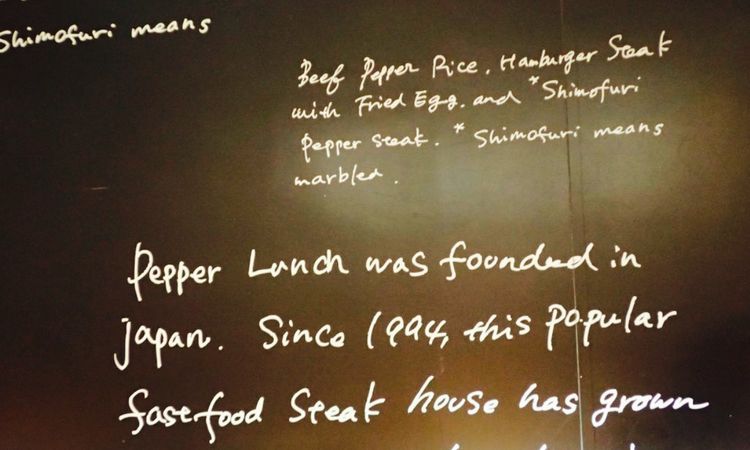 Shimofuri means
Beef Pepper Rice, Hamburger Steak
with Fried Egg, and *Shimofuri
Pepper Steak. * Shimofuri means
marbled.
Pepper Lunch was founded in
Japan. Since 1994, this popular
fastfood Steak house has grown